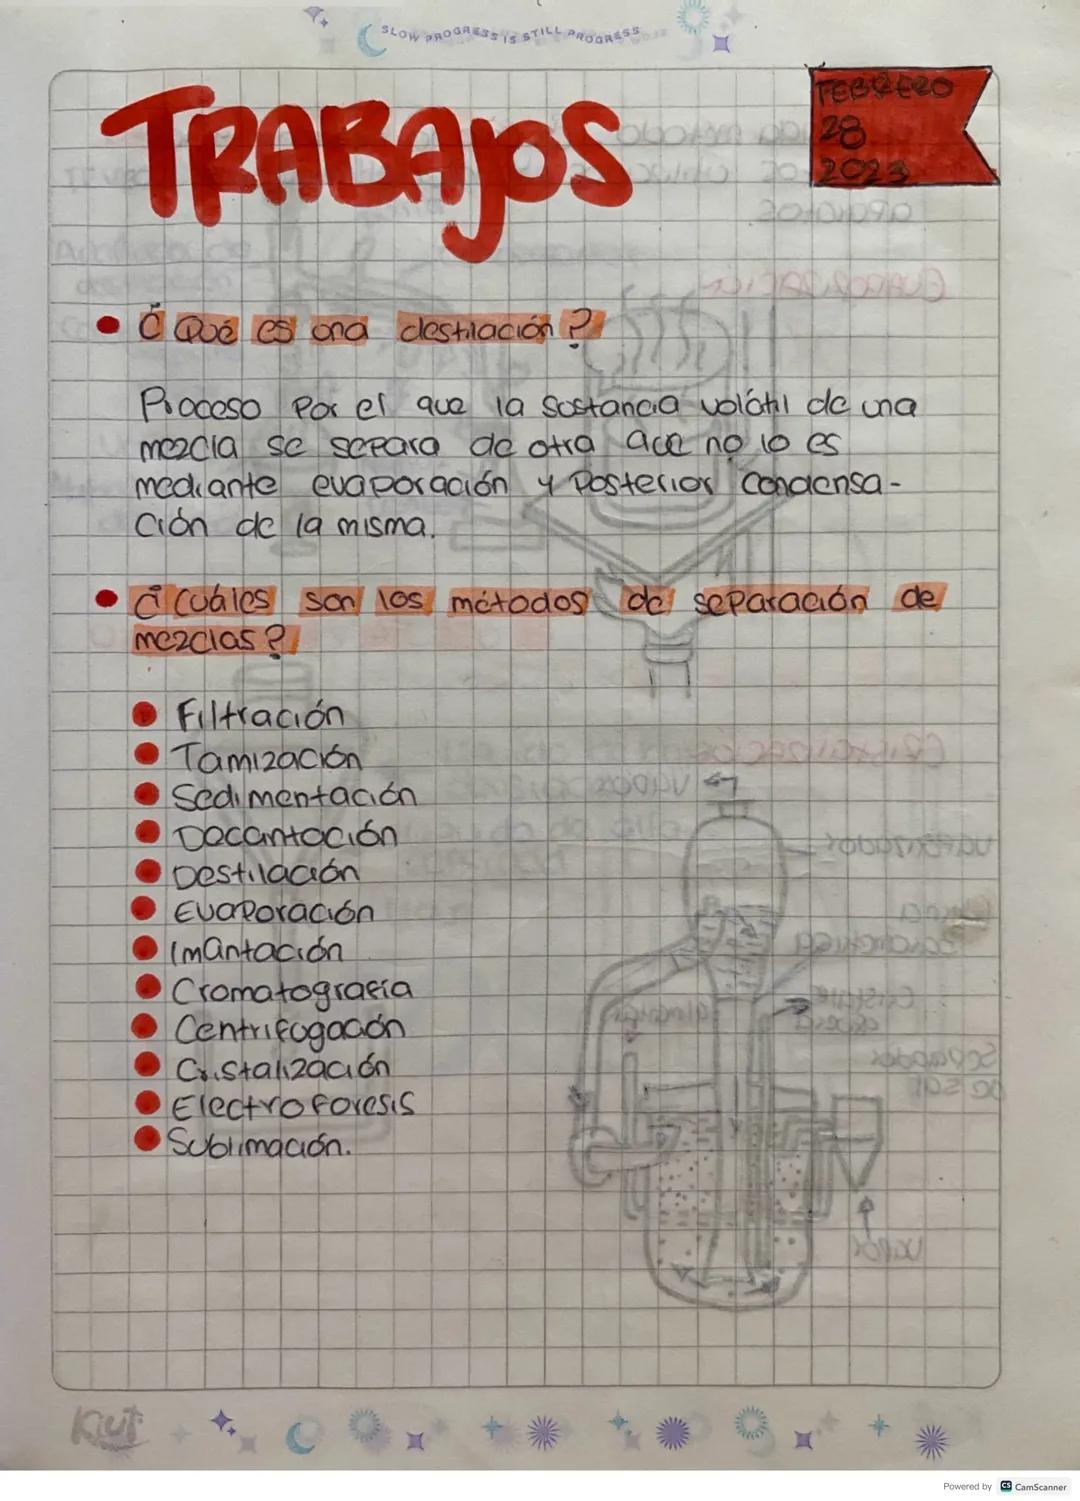 SLOW PROGRESS IS STILL PROGRESS
TRABAJOS
FEBRERO
28
2023
¿Qué es una destilación?
Proceso por el que la sustancia volátil de una
mezcla se separa de otra que no lo es
mediante evaporación y posterior condensa-
ción de la misma.
¿Cuáles son los métodos de separación de
mezclas?
Filtración
Tamización
Sedimentación
Decantación
Destilación
Evaporación
Imantación
Cromatografía
Centrifugación
Cristalización
Electroforesis
Sublimación.
Kiut
Powered by CS CamScanner